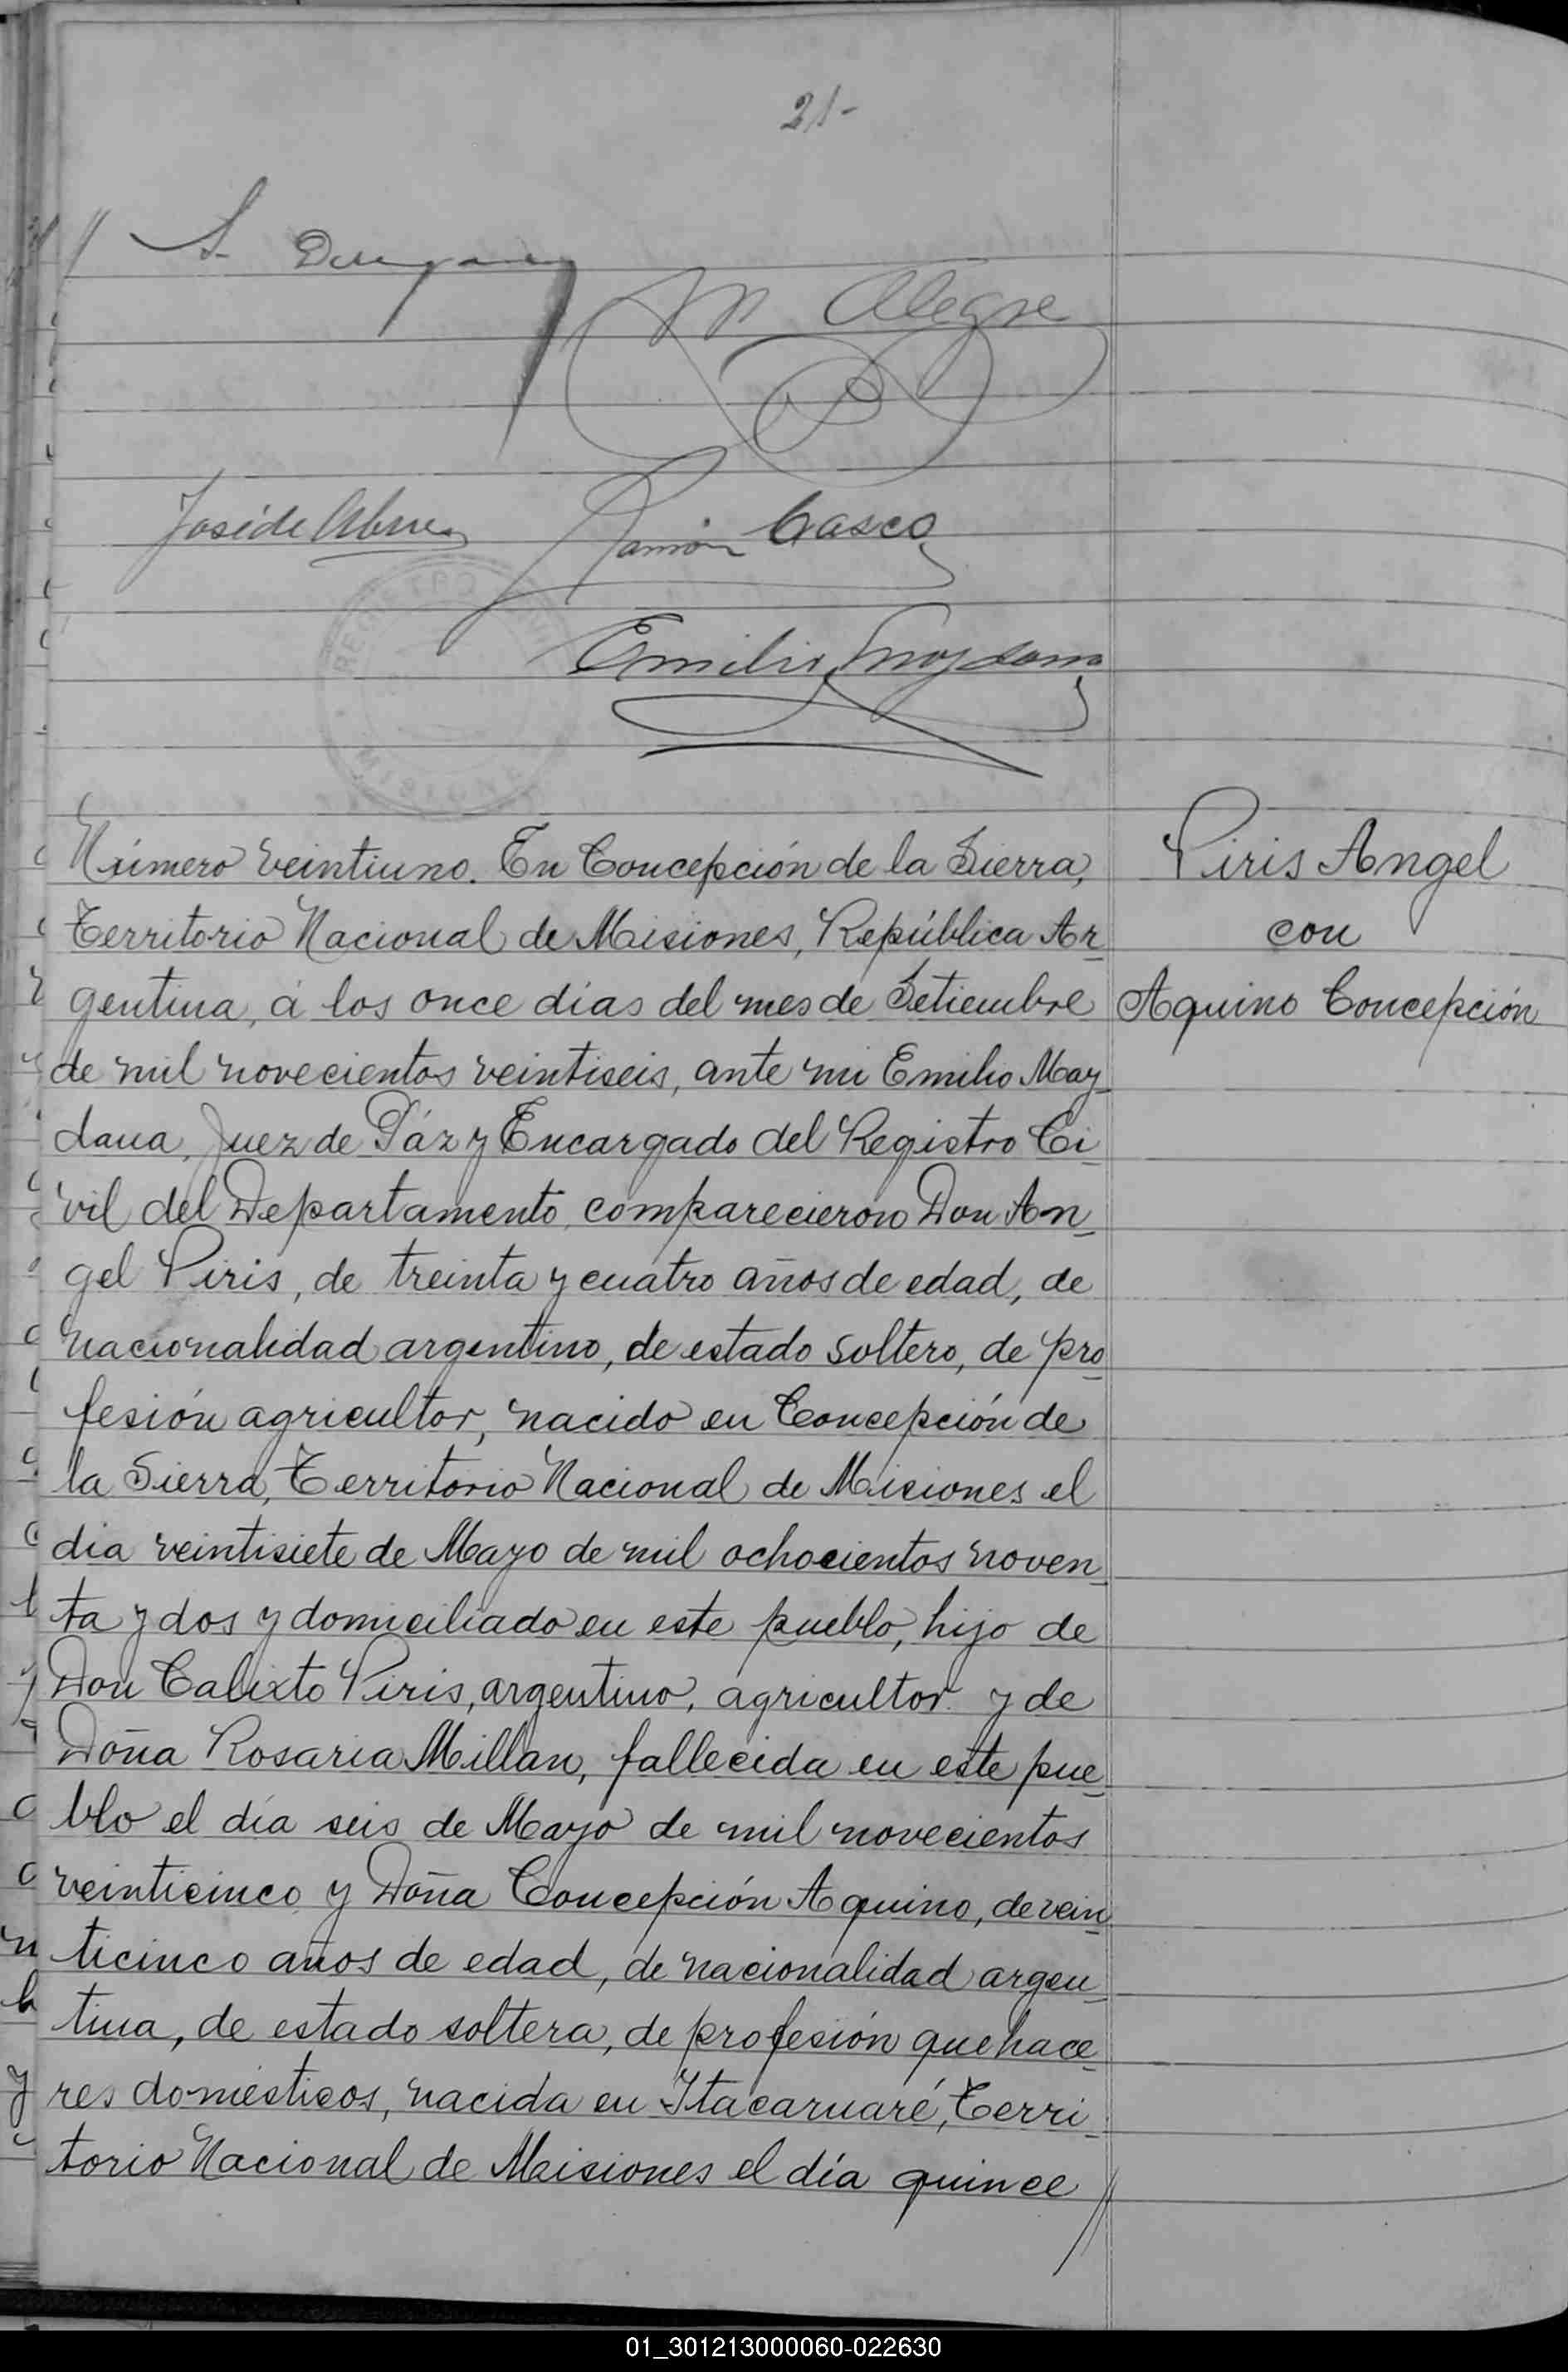 21-
M Alegre
José de Abreu Ramón Casco
REGISTRO CIVIL
MISIONES
Emilio Maydana
Número veintiuno. En Concepción de la Sierra,
Territorio Nacional de Misiones, República Ar
gentina, á los once dias del mes de Setiembre
de mil novecientos veintiseis, ante mi Emilio May
dana, Juez de Páz y Encargado del Registro Ci
vil del Departamento, comparecieron Don An
gel Piris, de treinta y cuatro años de edad, de
nacionalidad argentino, de estado soltero, de pro
fesión agricultor, nacido en Concepción de
la Sierra, Territorio Nacional de Misiones el
dia veintisiete de Mayo de mil ochocientos noven
ta y dos y domiciliado en este pueblo, hijo de
Don Calixto Piris, argentino, agricultor y de
Doña Rosaria Millan, fallecida en este pue
blo el día seis de Mayo de mil novecientos
veinticinco y Doña Concepción Aquino, de vein
ticinco años de edad, de nacionalidad argen
tina, de estado soltera, de profesión quehace
res domésticos, nacida en Itacaruaré, Terri
torio Nacional de Misiones el día quince //
Piris Angel
con
Aquino Concepción
01_301213000060-022630